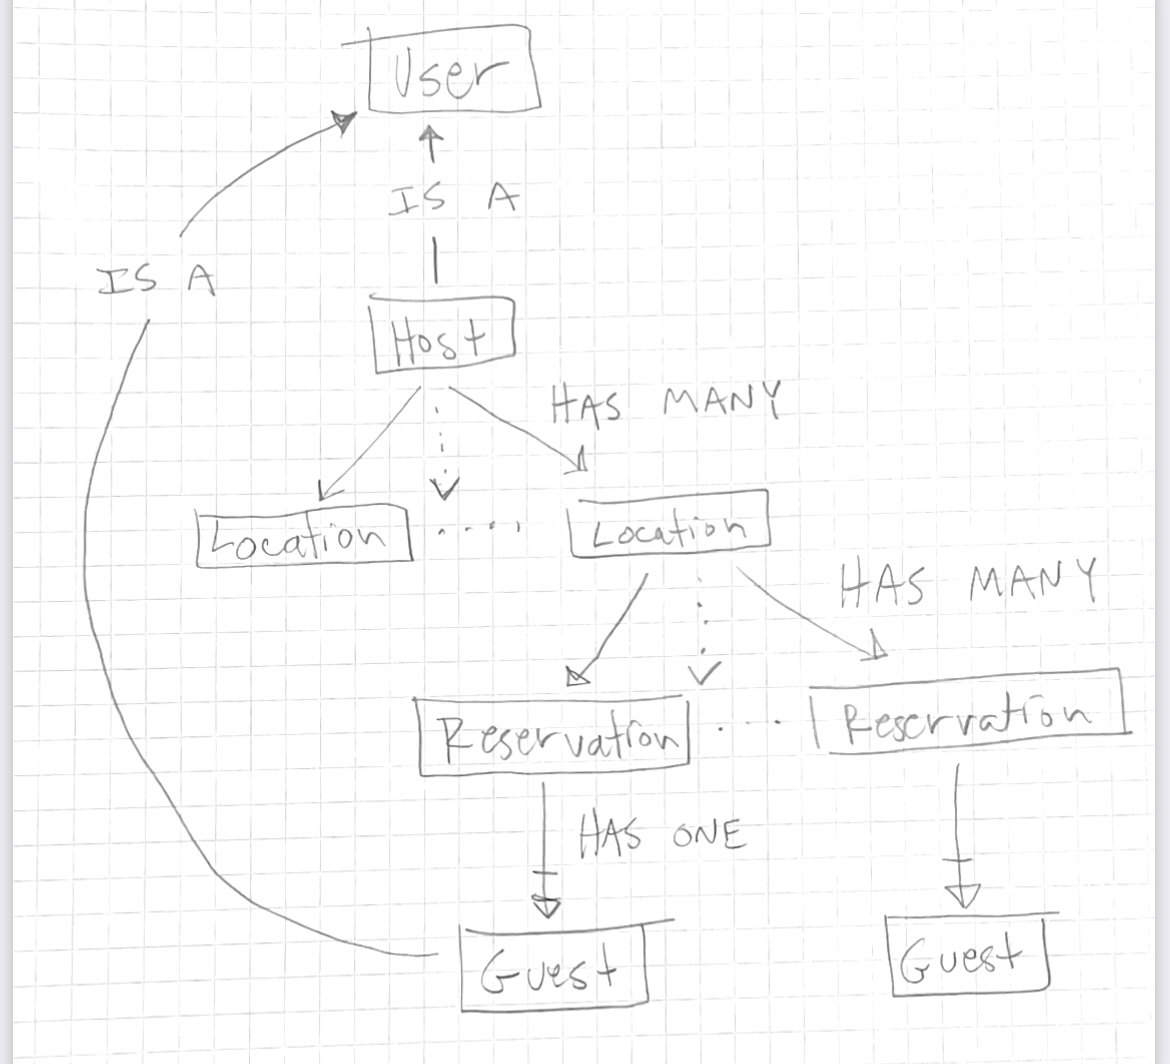 User
IS A
IS A
Host
HAS MANY
Location
Location
HAS MANY
Reservation
Reservation
HAS ONE
Guest
Guest